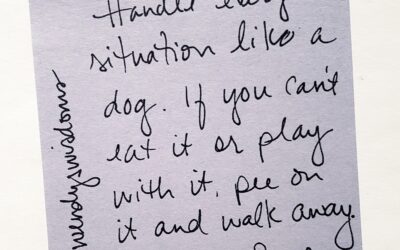 Handle every
situation like a
dog. If you can't
eat it or play
with it, pee on
it and walk away.